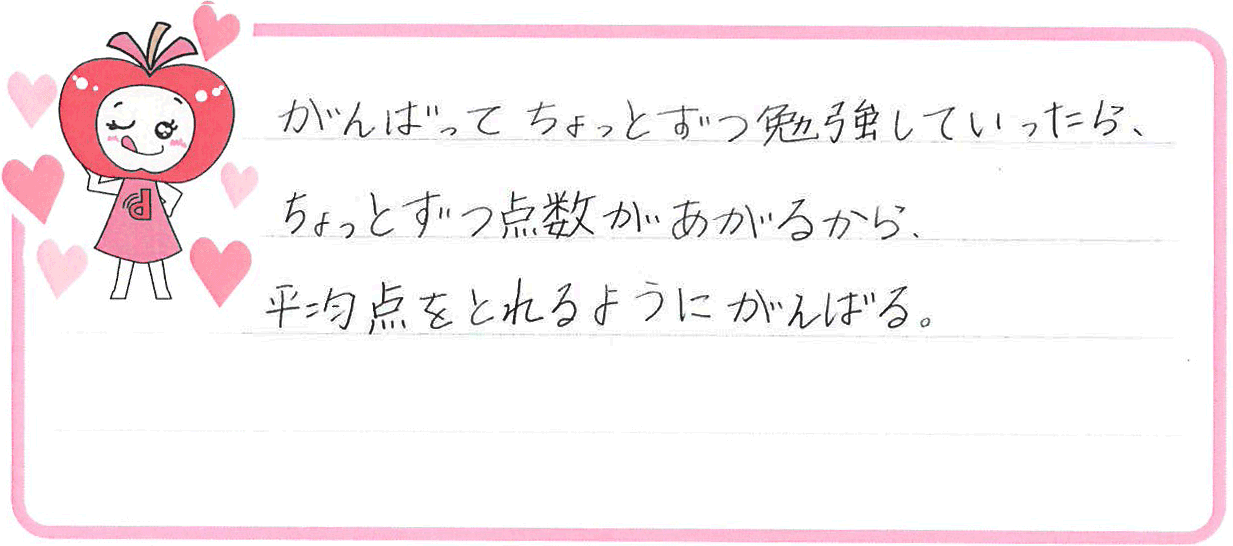 がんばってちょっとずつ勉強していったら、
ちょっとずつ点数があがるから、
平均点をとれるようにがんばる。